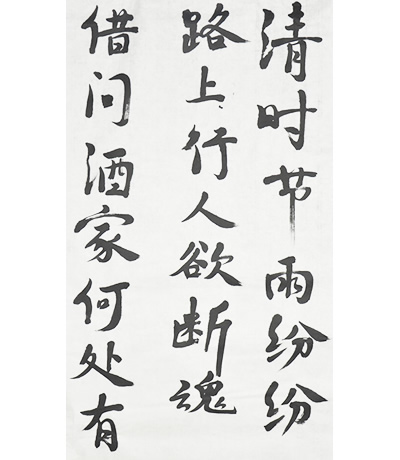 清时节雨纷纷
路上行人欲断魂
借问酒家何处有